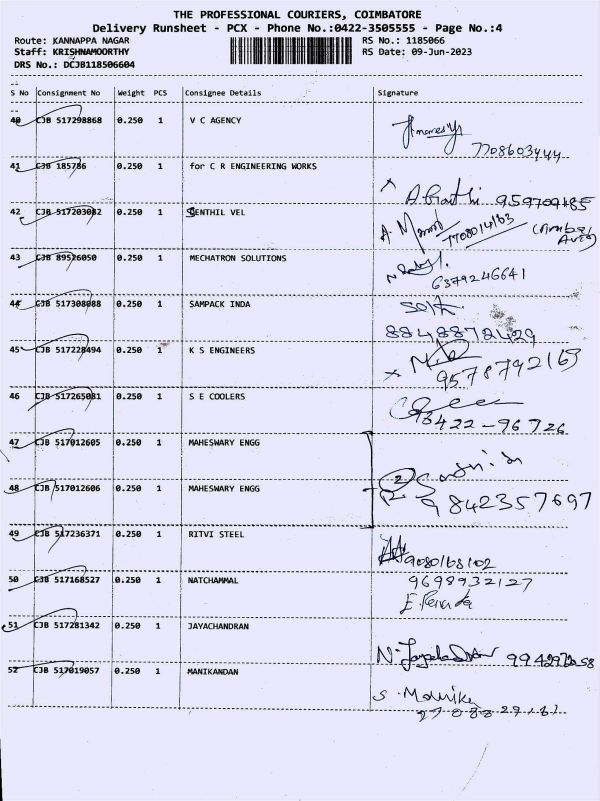 THE PROFESSIONAL COURIERS, COIMBATORE
Delivery Runsheet - PCX - Phone No.:0422-3505555 - Page No.:4
Route: KANNAPPA NAGAR RS No.: 1185066
Staff: KRISHNAMOORTHY RS Date: 09-Jun-2023
DRS No.: DCJB118506604
S No Consignment No Weight PCS Consignee Details Signature
40 CJB 517298868 0.250 1 V C AGENCY
7708603444
41 CJB 185786 0.250 1 for C R ENGINEERING WORKS
42 CJB 517203082 0.250 1 SENTHIL VEL
7708014163
43 CJB 89526050 0.250 1 MECHATRON SOLUTIONS
6379246641
44 CJB 517308088 0.250 1 SAMPACK INDA
45 CJB 517228494 0.250 1 K S ENGINEERS
9578792163
46 CJB 517265081 0.250 1 S E COOLERS
47 CJB 517012605 0.250 1 MAHESWARY ENGG
48 CJB 517012606 0.250 1 MAHESWARY ENGG
9842357697
49 CJB 517236371 0.250 1 RITVI STEEL
9080168102
50 CJB 517168527 0.250 1 NATCHAMMAL
9698932127
51 CJB 517281342 0.250 1 JAYACHANDRAN
52 CJB 517019057 0.250 1 MANIKANDAN